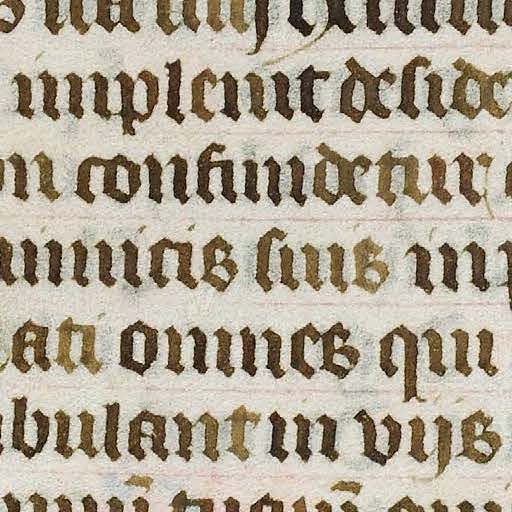 implevit deside
on confundetur
inimicis suis in p
ati omnes qui
bulant in vijs